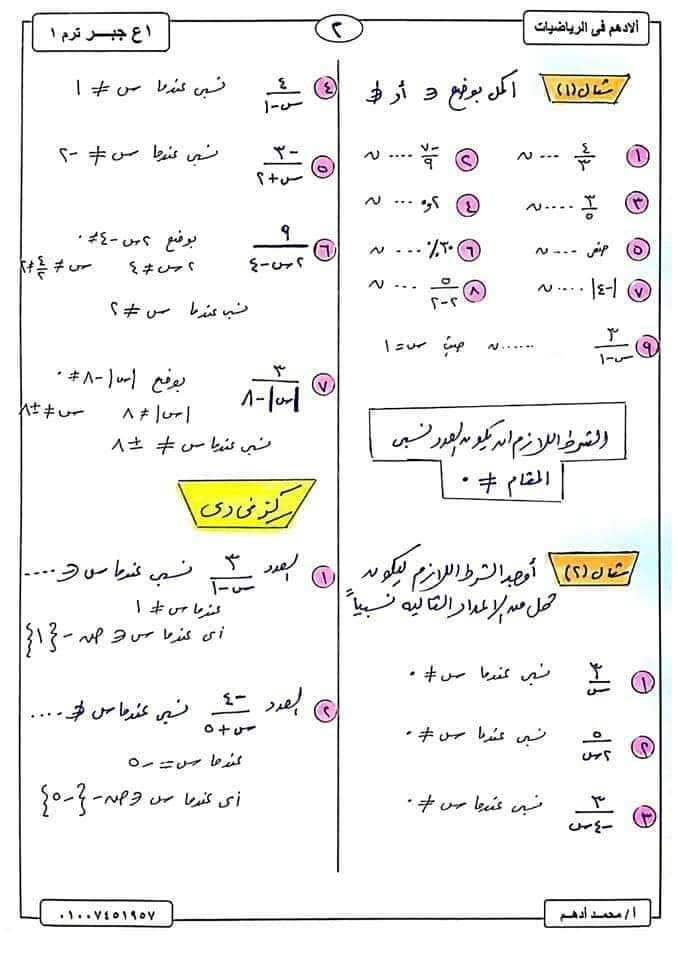 ألادهم فى الرياضيات
٢
١ع جبـــر ترم ١
مثال (١) اكمل بوضع ∈ أو ∉
١ ٤/٣ .... ن
٢ -٧/٩ .... ن
٣ ٣/٥ .... ن
٤ ٢و٠ .... ن
٥ صفر .... ن
٦ ٣٠٪ .... ن
٧ |-٤| .... ن
٨ ٥/(٢-٢) .... ن
٩ ٣/(س-١) ...... ن حيث س = ١
الشرط اللازم ان يكون العدد نسبى
المقام ≠ ٠
مثال (٢) أوجد الشرط اللازم ليكون
كل من الاعداد التاليه نسبياً
١ ٣/س نسبى عندما س ≠ ٠
٢ ٥/٢س نسبى عندما س ≠ ٠
٣ ٣/-٤س نسبى عندما س ≠ ٠
٤ ٤/(س-١) نسبى عندما س ≠ ١
٥ -٣/(س+٢) نسبى عندما س ≠ -٢
٦ ٩/(٢س-٤) بوضع ٢س-٤ ≠ ٠
٢س ≠ ٤ س ≠ ٤/٢ ≠ ٢
نسبى عندما س ≠ ٢
٧ ٣/(|س|-٨) بوضع |س|-٨ ≠ ٠
|س| ≠ ٨ س ≠ ±٨
نسبى عندما س ≠ ±٨
ركز فى دى
١ العدد ٣/(س-١) نسبى عندما س ∈ ....
عندما س ≠ ١
أى عندما س ∈ ص - {١}
٢ العدد -٤/(س+٥) نسبى عندما س ∉ ....
عندما س = -٥
أى عندما س ∈ ص - {-٥}
أ / محمد أدهم
٠١٠٠٧٤٥١٩٥٧